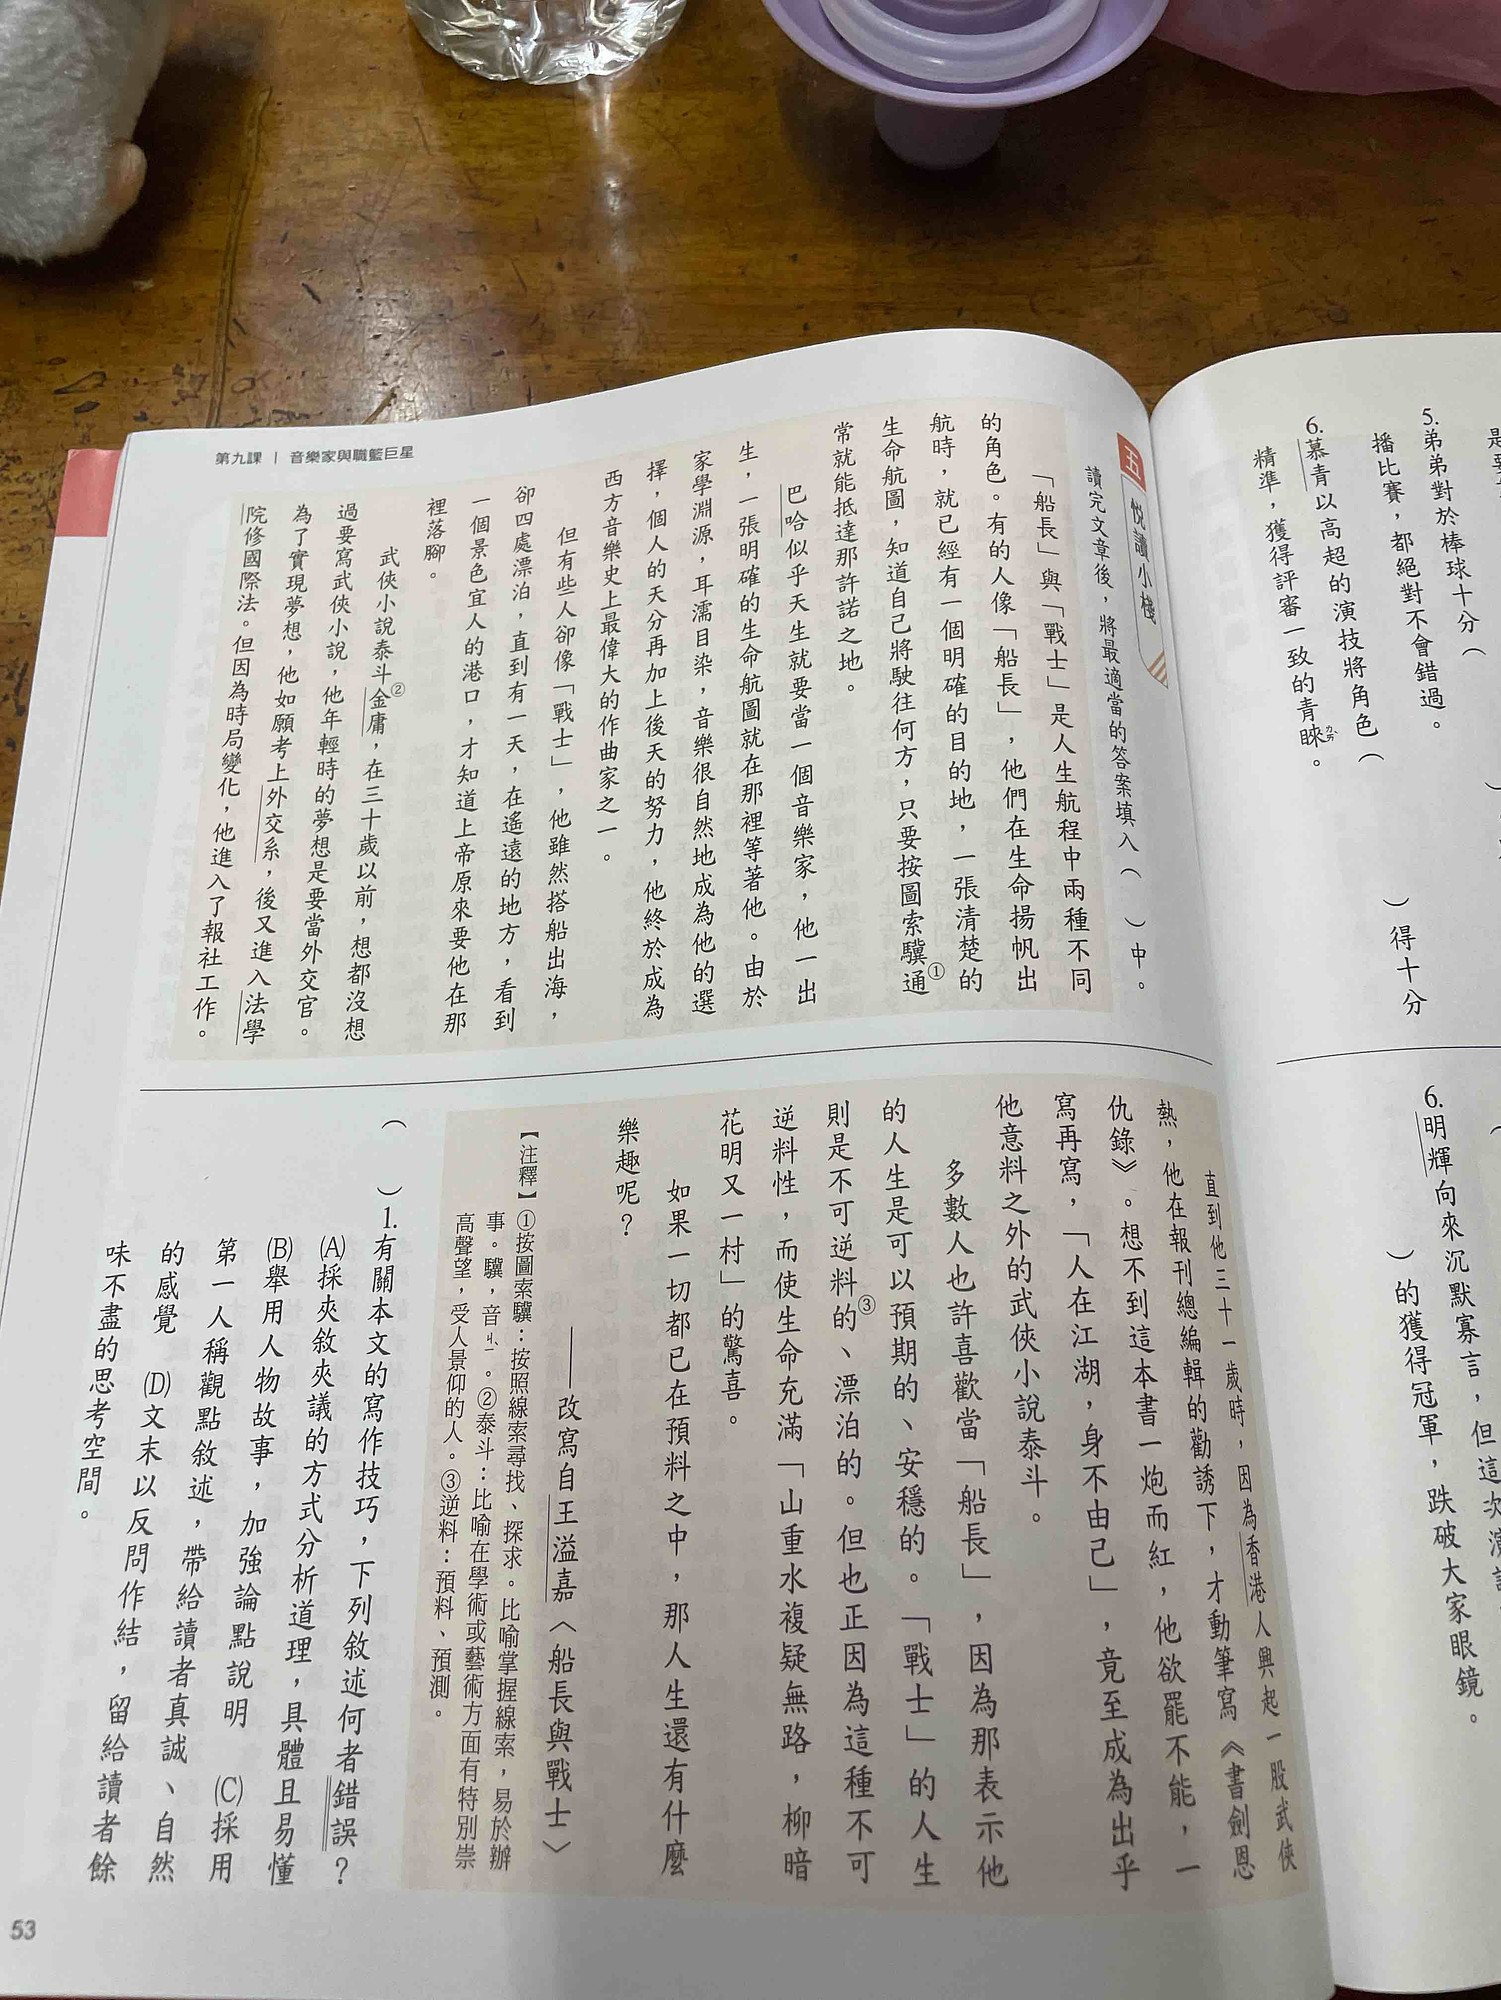 是
5.弟弟對於棒球十分（　　）
播比賽，都絕對不會錯過。
6.慕青以高超的演技將角色（　　）得十分
精準，獲得評審一致的青睞ㄌㄞˋ。
6.明輝向來沉默寡言，但這次演
（　　）的獲得冠軍，跌破大家眼鏡。
五 悅讀小棧
讀完文章後，將最適當的答案填入（　）中。
「船長」與「戰士」是人生航程中兩種不同
的角色。有的人像「船長」，他們在生命揚帆出
航時，就已經有一個明確的目的地，一張清楚的
生命航圖，知道自己將駛往何方，只要按圖索驥①通
常就能抵達那許諾之地。
巴哈似乎天生就要當一個音樂家，他一出
生，一張明確的生命航圖就在那裡等著他。由於
家學淵源，耳濡目染，音樂很自然地成為他的選
擇，個人的天分再加上後天的努力，他終於成為
西方音樂史上最偉大的作曲家之一。
但有些人卻像「戰士」，他雖然搭船出海，
卻四處漂泊，直到有一天，在遙遠的地方，看到
一個景色宜人的港口，才知道上帝原來要他在那
裡落腳。
武俠小說泰斗②金庸，在三十歲以前，想都沒想
過要寫武俠小說，他年輕時的夢想是要當外交官。
為了實現夢想，他如願考上外交系，後又進入法學
院修國際法。但因為時局變化，他進入了報社工作。
直到他三十一歲時，因為香港人興起一股武俠
熱，他在報刊總編輯的勸誘下，才動筆寫《書劍恩
仇錄》。想不到這本書一炮而紅，他欲罷不能，一
寫再寫，「人在江湖，身不由己」，竟至成為出乎
他意料之外的武俠小說泰斗。
多數人也許喜歡當「船長」，因為那表示他
的人生是可以預期的、安穩的。「戰士」的人生
則是不可逆料③的、漂泊的。但也正因為這種不可
逆料性，而使生命充滿「山重水複疑無路，柳暗
花明又一村」的驚喜。
如果一切都已在預料之中，那人生還有什麼
樂趣呢？
——改寫自王溢嘉〈船長與戰士〉
【注釋】①按圖索驥：按照線索尋找、探求。比喻掌握線索，易於辦
事。驥，音ㄐㄧˋ。②泰斗：比喻在學術或藝術方面有特別崇
高聲望，受人景仰的人。③逆料：預料、預測。
（　）1.有關本文的寫作技巧，下列敘述何者錯誤？
(A)採夾敘夾議的方式分析道理，具體且易懂
(B)舉用人物故事，加強論點說明　(C)採用
第一人稱觀點敘述，帶給讀者真誠、自然
的感覺　(D)文末以反問作結，留給讀者餘
味不盡的思考空間。
第九課｜音樂家與職籃巨星
53